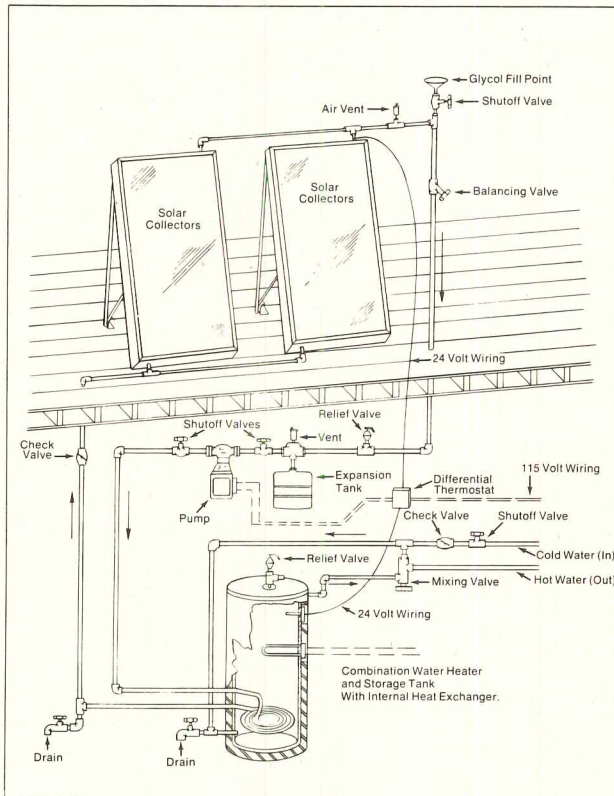 Glycol Fill Point
Shutoff Valve
Air Vent
Balancing Valve
Solar
Collectors
Solar
Collectors
24 Volt Wiring
Shutoff Valves
Vent
Relief Valve
Check
Valve
Pump
Expansion
Tank
Differential
Thermostat
115 Volt Wiring
Check Valve
Shutoff Valve
Cold Water (In)
Hot Water (Out)
Mixing Valve
Relief Valve
24 Volt Wiring
Combination Water Heater
and Storage Tank
With Internal Heat Exchanger.
Drain
Drain